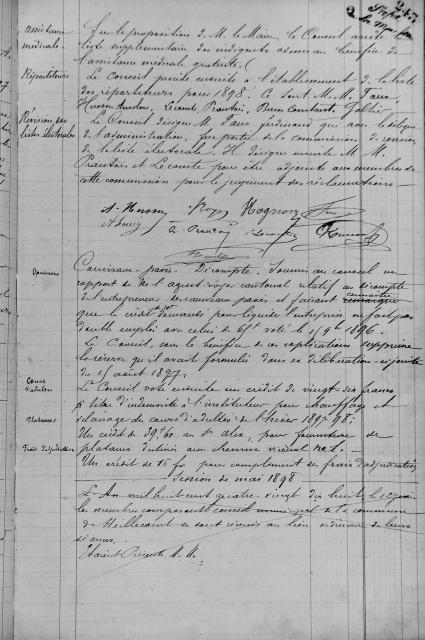 assistance médicale. Sur la proposition de M. le Maire, le Conseil arrête
liste supplémentaire des indigents admis au bénéfice de
l'assistance médicale gratuite.
Répartiteurs Le Conseil procède ensuite à l'établissement de la liste
des répartiteurs pour 1898. Ce sont M.M.
Révision des listes électorales Le Conseil désigne M. Ferdinand qui sera le délégué
de l'administration, partie de la commission de
de la liste électorale. Il désigne ensuite M. M.
Prautois et Lecomte pour être adjoints aux membres de
cette commission pour le jugement des réclamations
Husson Hognon
Caniveaux pavés. Décompte. Soumis au conseil un
rapport de M. l'agent voyer cantonal relatif au décompte
de l'entrepreneur des caniveaux pavés et faisant
que le crédit demandé pour liquider l'entreprise ne fait pas
double emploi avec celui de voté le 1896.
Le Conseil, sous le bénéfice de ces explications supprime
la réserve qu'il avait formulée dans sa délibération
de août 1897.
Cours d'adultes Le Conseil vote ensuite un crédit de vingt francs
à titre d'indemnité à l'instituteur pour chauffage et
éclairage du cours d'adultes de l'hiver 1897-98;
Platanes Un crédit de 39f.60 au pour fourniture de
platanes destinés au chemin vicinal no 2.
Frais d'adjudication Un crédit de 15 fr pour complément de frais d'adjudication
Session de mai 1898
L'An mil huit cent quatre-vingt dix huit, le
les membres composant le conseil municipal de la commune
de Heillecourt se sont réunis au lieu ordinaire de leurs
séances.
Etaient Présents M. M.